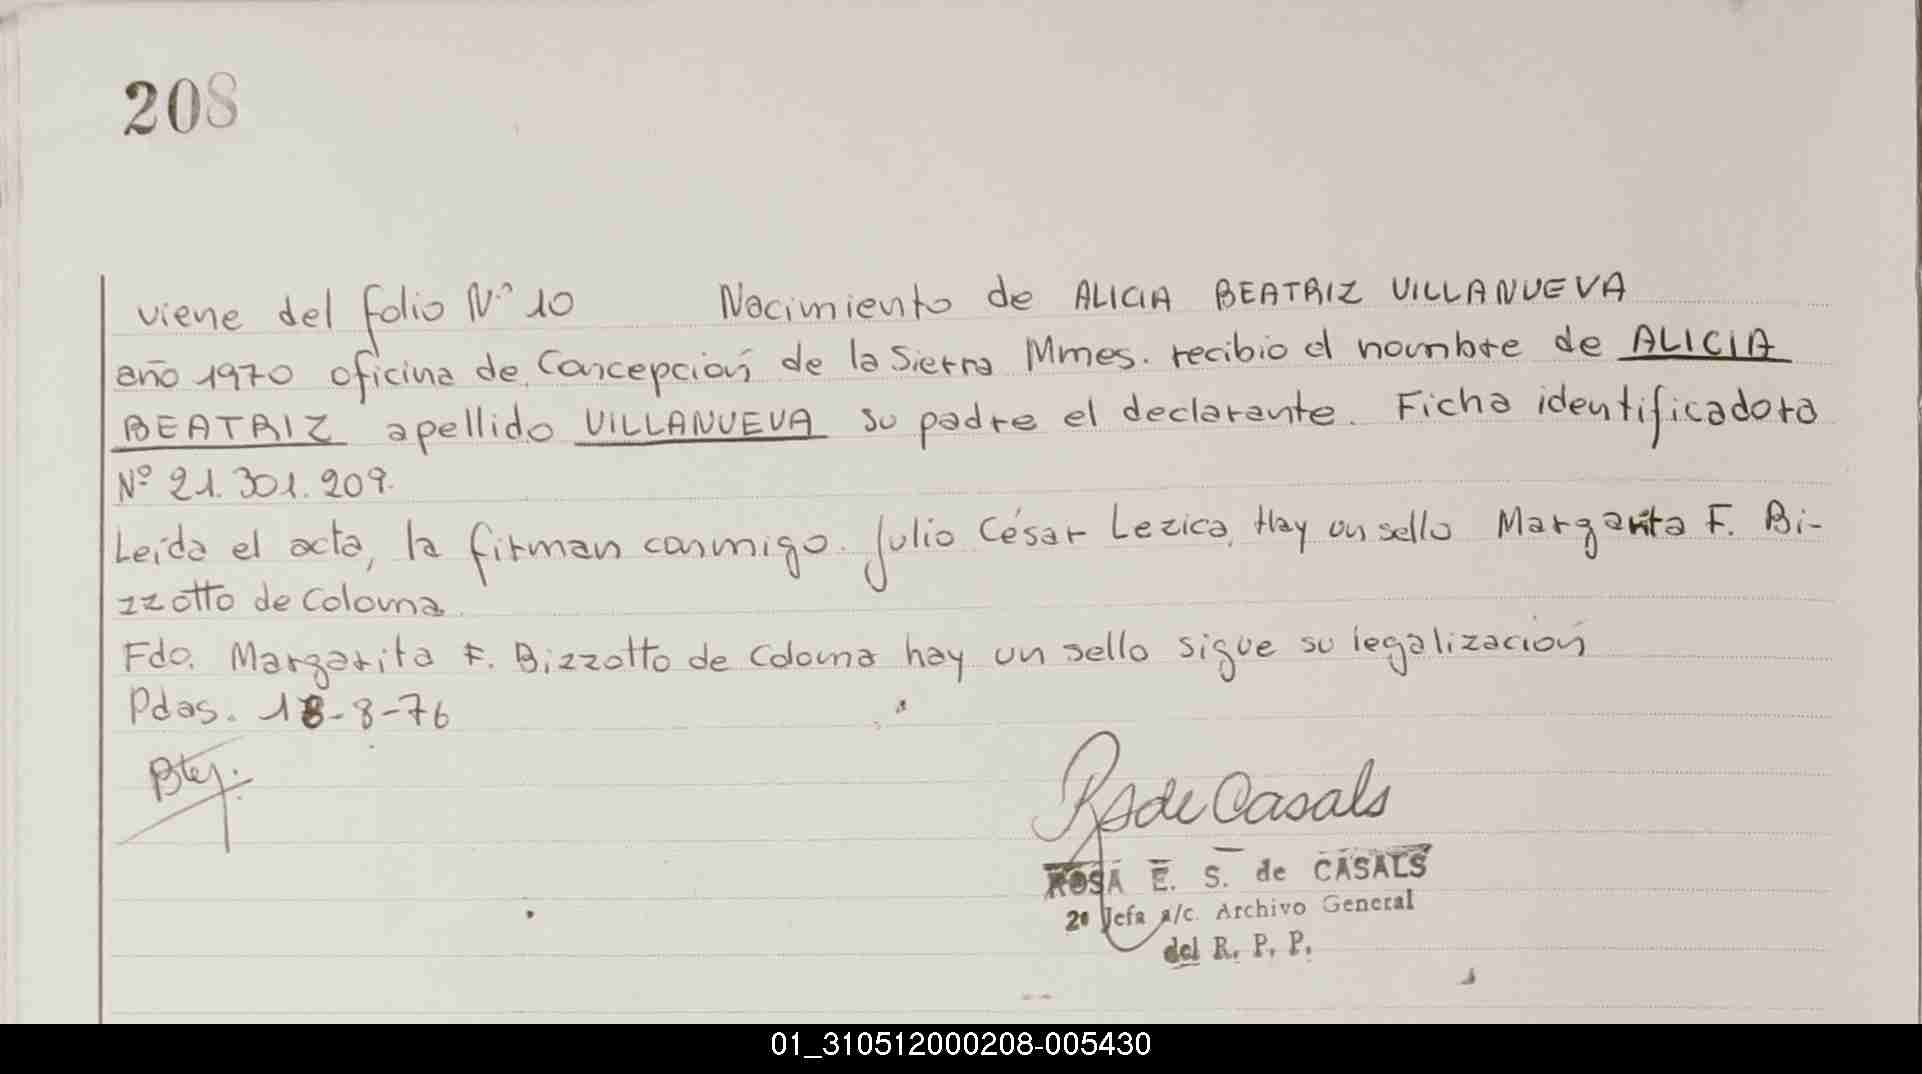 208
viene del folio Nº 10 Nacimiento de ALICIA BEATRIZ VILLANUEVA
año 1970 oficina de Concepción de la Sierra Mmes. recibio el nombre de ALICIA
BEATRIZ apellido VILLANUEVA su padre el declarante. Ficha identificadora
Nº 21.301.209.
Leída el acta, la firman conmigo. Julio César Lezica, Hay un sello Margarita F. Bi-
zzotto de Coloma
Fdo. Margarita F. Bizzotto de Coloma hay un sello sigue su legalización
Pdas. 18-8-76
RSde Casals
ROSA E. S. de CASALS
2ª Jefa a/c. Archivo General
del R. P. P.
01_310512000208-005430